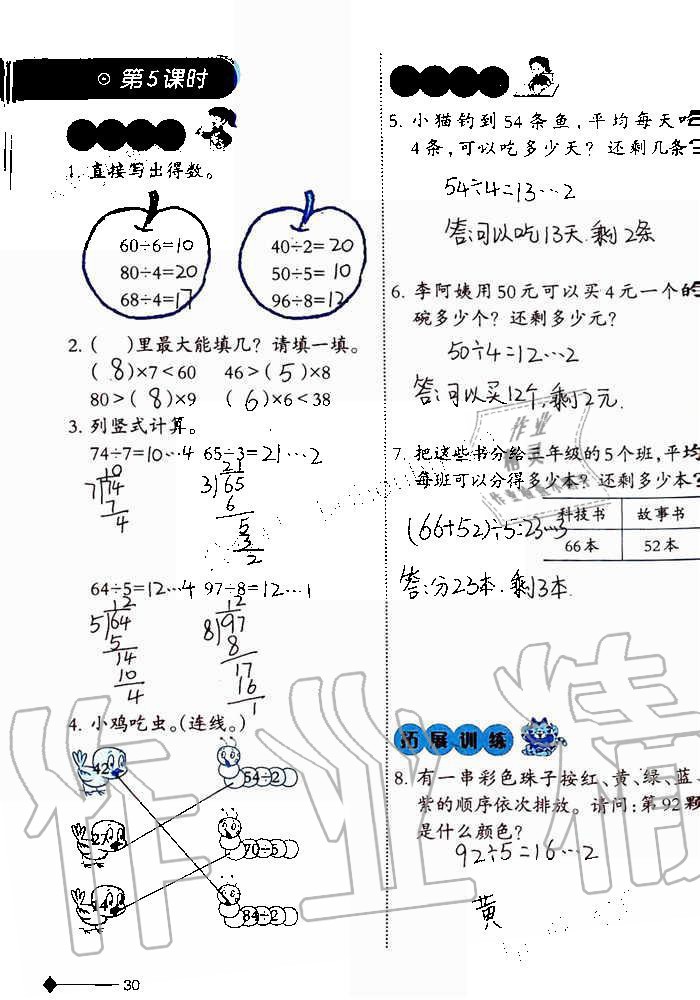 第5课时
1. 直接写出得数。
60÷6=10
80÷4=20
68÷4=17
40÷2=20
50÷5=10
96÷8=12
2. (  )里最大能填几？请填一填。
( 8 )×7<60 46>( 5 )×8
80>( 8 )×9 ( 6 )×6<38
3. 列竖式计算。
74÷7=10…4 65÷3=21…2
10
7)74
7
4
21
3)65
6
5
3
2
64÷5=12…4 97÷8=12…1
12
5)64
5
14
10
4
12
8)97
8
17
16
1
4. 小鸡吃虫。(连线。)
42 54÷2
27 70÷5
14 84÷2
30
5. 小猫钓到54条鱼，平均每天吃
4条，可以吃多少天？还剩几条？
54÷4=13…2
答:可以吃13天.剩2条
6. 李阿姨用50元可以买4元一个的
碗多少个？还剩多少元？
50÷4=12…2
答:可以买12个.剩2元.
7. 把这些书分给三年级的5个班，平均
每班可以分得多少本？还剩多少本？
科技书 故事书
66本 52本
(66+52)÷5=23…3
答:分23本.剩3本.
拓展训练
8. 有一串彩色珠子按红、黄、绿、蓝、
紫的顺序依次排放。请问：第92颗
是什么颜色？
92÷5=16…2
黄
作业精